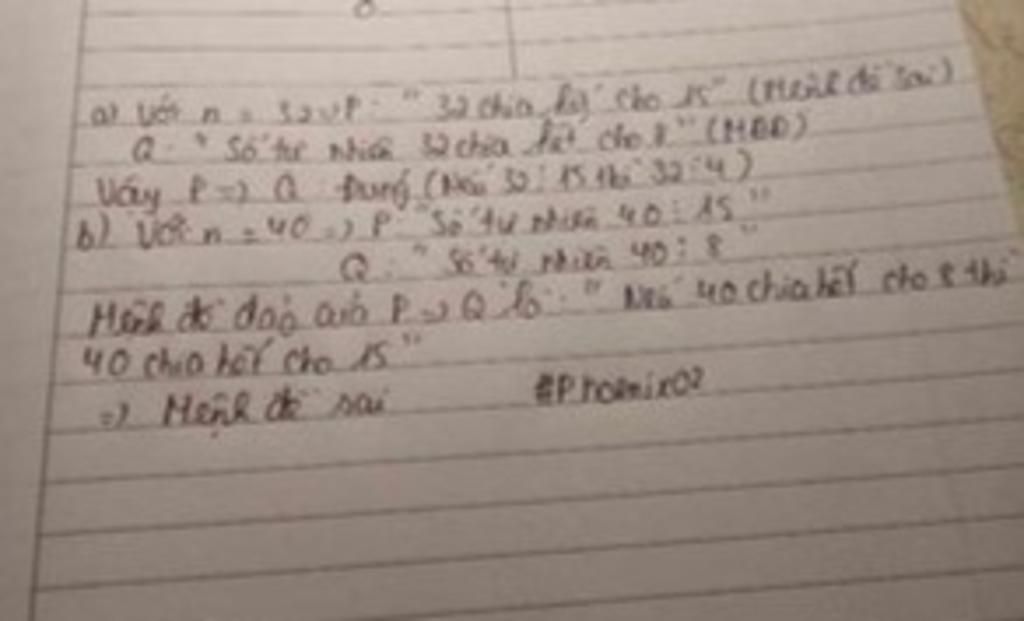 a) Với n = 32 => P: " 32 chia hết cho 15" (Mệnh đề sai)
Q: " Số tự nhiên 32 chia hết cho 8" (MĐĐ)
Vậy P => Q Đúng (Nếu 32 ⋮ 15 thì 32 ⋮ 4)
b) Với n = 40 => P: "Số tự nhiên 40 ⋮ 15 "
Q: " Số tự nhiên 40 ⋮ 8 "
Mệnh đề đảo của P => Q là: " Nếu 40 chia hết cho 8 thì
40 chia hết cho 15 "
=> Mệnh đề sai #Phoenix02